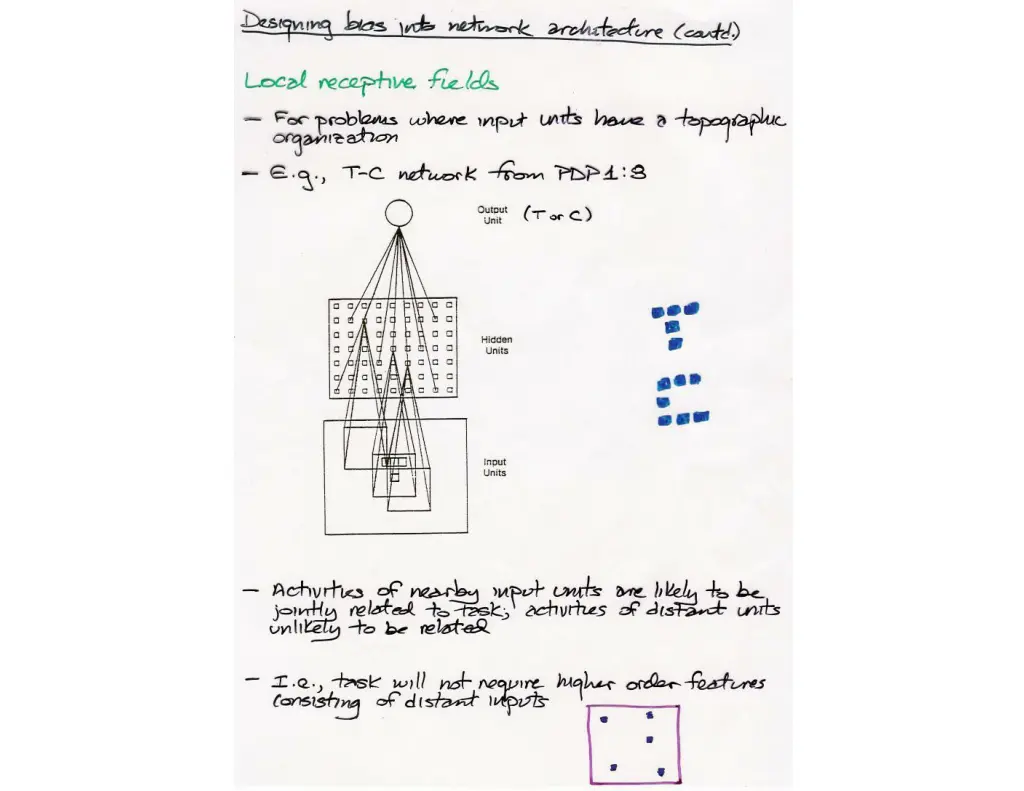 Designing bias into network architecture (contd.)
Local receptive fields
— For problems where input units have a topographic
organization
— E.g., T-C network from PDP1:8
Output
Unit
(T or C)
Hidden
Units
Input
Units
— Activities of nearby input units are likely to be
jointly related to task; activities of distant units
unlikely to be related
— I.e., task will not require higher order features
consisting of distant inputs